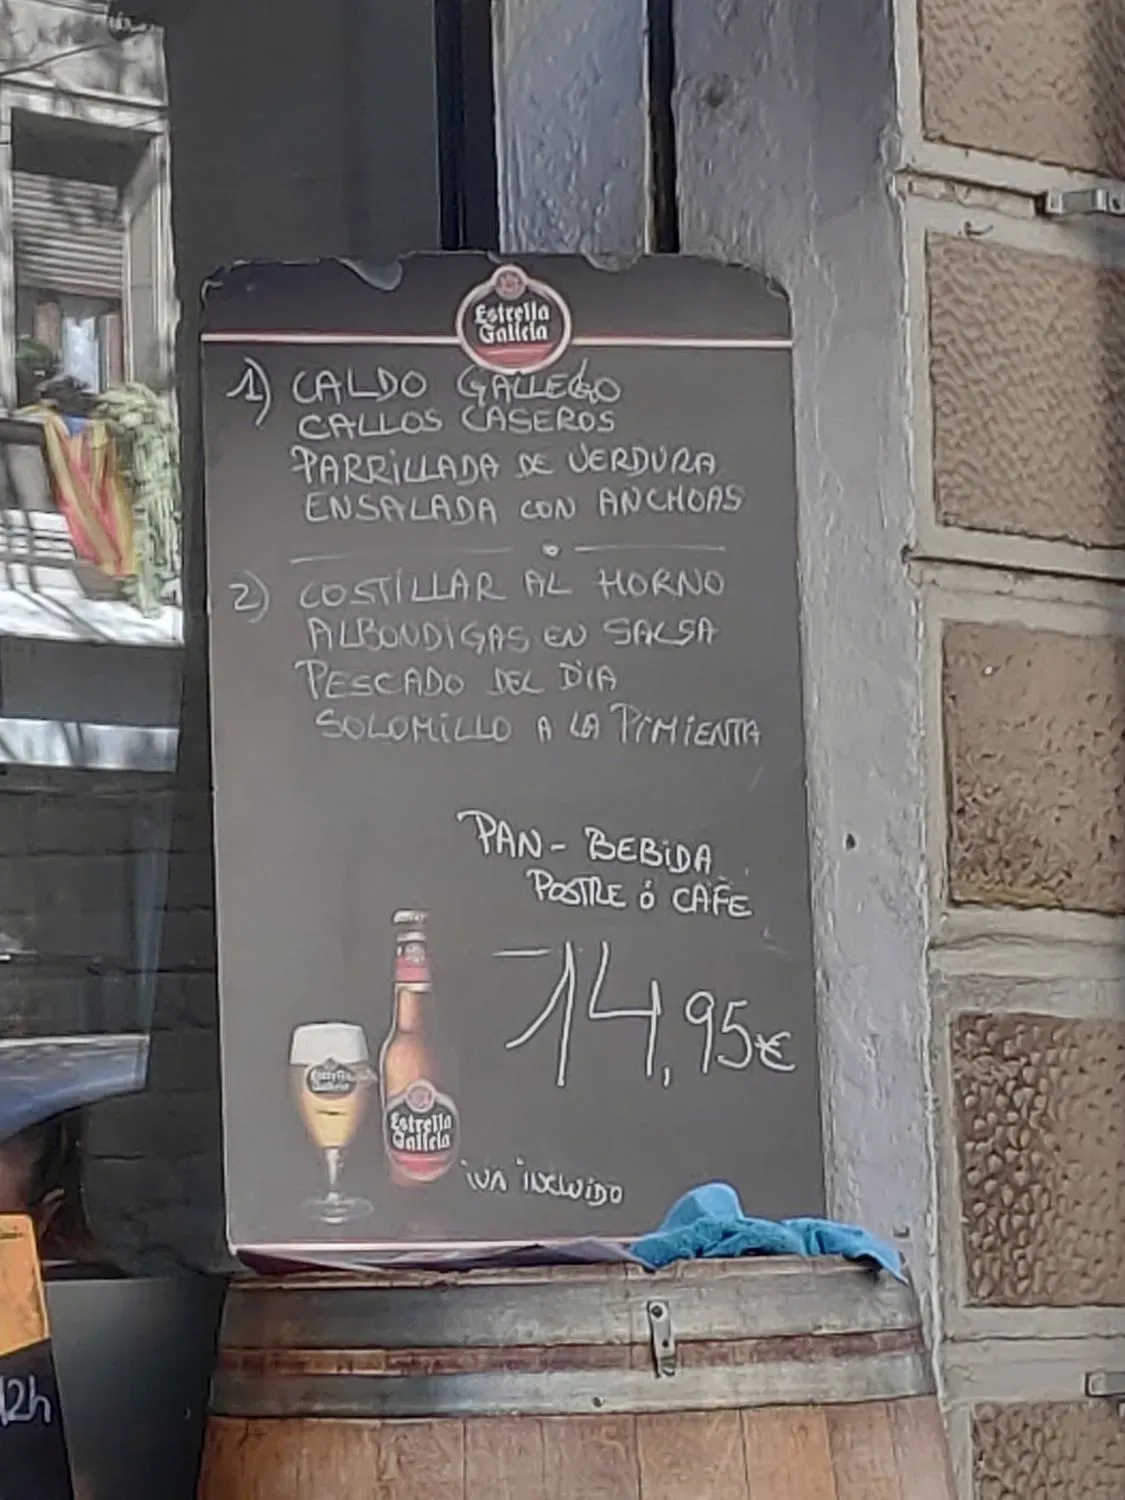 Estrella
Galicia
1) CALDO GALLEGO
CALLOS CASEROS
PARRILLADA DE VERDURA
ENSALADA CON ANCHOAS
2) COSTILLAR AL HORNO
ALBONDIGAS EN SALSA
PESCADO DEL DIA
SOLOMILLO A LA PIMIENTA
PAN - BEBIDA
POSTRE ó CAFE
14,95€
Estrella
Galicia
Estrella
Galicia
iVA iNCLUIDO
12h